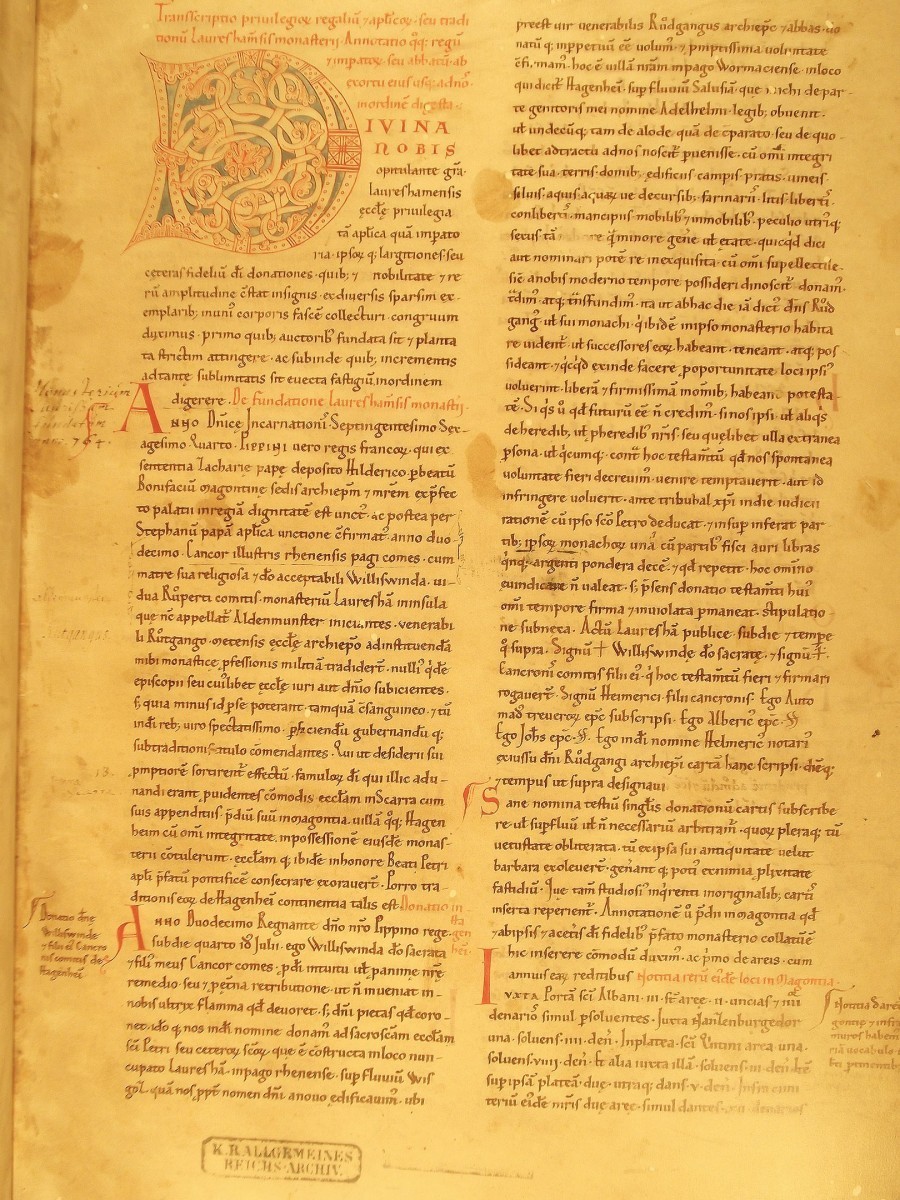 Transcriptio privilegioꝝ regaliū & aplicoꝝ · seu tradi
tionū Laureshāmsis monasterij · Annotatio qq; regū
& impatoꝝ · seu abbatū · ab
exortu eius usq; ad nos
in ordinē digesta ·
DIVINA
NOBIS
opitulante gr̄a ·
laureshamensis
ęccłę privilegia
tā aplica quā impato
ria · ipsoꝝ q; largitiones · seu
ceteras fidelium dī donationes · quib; & nobilitate & re
rū amplitudine c̄stat insignis · ex diversis sparsim ex-
emplarib; inunū corporis fascē collecturi · congruum
duximus · primo quib; auctorib; fundata sit & planta
ta strictim attingere · ac subinde quib; incrementis
ad tantę sublimitatis sit evecta fastigiū, in ordinem
digerere · De fundatione Laureshāmsis monasterij
ANNO Dn̄ice Incarnationis̄ · Septingentesimo Sex-
agesimo Quarto · Pippini vero regis francoꝝ · qui ex
sententia Zacharię papę deposito Hilderico · p beatū
Bonifaciū magontinę sedis archiep̄m & mr̄em ex p̄fec
to palatii in regiā dignitatē est unct9 · ac postea per
Stephanū papā aplica unctione c̄firmat9 · anno duo-
decimo · Cancor illustris rhenensis pagi comes · cum
matre sua religiosa & dō acceptabili Williswinda · vi-
dua Ruͦperti comitis · monasteriū Laureshā in insula
que nc̄ appellat̄ Aldenmunster iniciantes · venerabi
li Ruͦtgango · metensis ęccłę archiep̄o ad instituendā
inibi monasticę p̄fessionis militiā tradidert̄ · nulli9 qͥdē
episcopii seu cuiłibet ęccłę iuri aut dn̄io subicientes ·
s; quia minus id p se poterant · tamquā c̄sanguineo · & tū
in dī reb; viro spectatissimo · p̄ficiendū gubernandū q;
sub traditionis titulo c̄mendantes · Qui ut desiderii sui
pmptiorē sortirent̄ effectū · famuloꝝ dī qui illic adu-
nandi erant puidentes c̄modis ecclam in Scarra cum
suis appenditiis · p̄diū suū in magontia · villā qq; Hagen
heim cū om̄i integritate in possessionē eiusdē monas-
terii c̄tulerunt · ęcclam q; ibidē in honore Beati Petri
apłi p̄fatū pontificē consecrare exoravert̄ · Porro tra-
ditionis eoꝝ de Hagenheī continentia talis est · Donatio in
ANNO Duodecimo Regnante dn̄o nr̄o Pippino rege ·
sub die quarto id9 Julij · ego Williswinda dō sacrata
& fili9 meus Cancor comes · p dī intuitu ut p animę nrę
remedio · seu p ęt̄na retributione · ut n̄ inveniat in
nobis ultrix flamma qđ devoret · s; dn̄i pietas qđ coro-
net · ido q; nos in dī nomine donam9 ad sacroscām ecclam
sc̄i Petri seu ceteroꝝ sc̄oꝝ · que ē c̄structa in loco nun-
cupato Laureshā · in pago rhenense · sup fluviū Wis
goz · quā nos ppt̄ nomen dn̄i a novo ędificavim9 · ubi
preest vir venerabilis Ruͦdgangus archiep̄c & abbas · do
natū q; inppetuū ēē volum9 · & pmptissima voluntate
c̄firmam9 · hoc ē villā nr̄am in pago Wormaciense · in loco
qui dicit̄ Hagenheī · sup fluviū Salusiā · que michi de par-
te genitoris mei nomine Adelhelmi · legib; obvenit ·
ut undecūq; tam de alode quā de c̄parato seu de quo-
libet adtractu ad nos noscit̄ pvenisse · cū om̄i integri
tate sua · terris · domib; ędificiis · campis · pratis · vineis ·
silvis · aquis · aquaꝝ ve decursib; · farinariis · litis · libertis ·
conlibertis · mancipiis mobilib; & inmobilib; peculio utriꝗ;
secus tā qͣ minore genere ut etate · quicqͥd dici
aut nominari potē re inexquisita · cū om̄i supellectile ·
sic a nobis moderno tempore possideri dinoscit̄ · donam9 ·
tdim9 · atq; tr̄nsfundim9 · ita ut ab hac die iā dict9 dn̄s Ruͦd
gang9 ut sui monachi · qͥ ibidē in ipso monasterio habita
re vident̄ · ut successores eoꝝ habeant · teneant · atq; pos
sideant · & qͥcqͥd exinde facere p oportunitate loci ipsi9
voluerint · liberā & firmissimā in om̄ib; habeant potesta
tē · Siqͥs v̄ qđ futurū ēē n̄ credim9 · si nos ipsi · ut aliqͥs
de heredib; ut pheredib9 nr̄is · seu quęlibet ulla extranea
psona · ut qͥcumq; · cont̄ hoc testam̄tū qđ nos spontanea
voluntate fieri decrevim9 · venire temptaverit · aut id
infringere voluerit · ante tribunal xp̄i in die iudicii
rationē cū ipso sc̄o Petro deducat · & insup inferat par
tib; ipsoꝝ monachoꝝ unā cū partib9 fisci auri libras
qͥnq; argenti pondera decē · & qđ repetit · hoc om̄ino
evindicare n̄ valeat · s; p̄sens donatio testam̄ti hui9
om̄i tempore firma & inviolata pmaneat · stipulatio-
ne subnexa · Actū Laureshā publice · sub die & tempe
qͦ supra · Signū ✝ Williswindę dō sacratę · & signū ✝ ·
Cancroni9 comitis filii ei9 · qͥ hoc testam̄tū fieri & firmari
rogavert̄ · Signū Heimerici · filii cancronis · Ego Auto
mag9 treveroꝝ epc̄ subscripsi · Ego Alberic9 epc̄ ·
Ego Johs̄ epc̄ · Ego in dī nomine Helmeric9 notari9
ex iussu dn̄i Ruͦdgangi archiep̄i cartā hanc scripsi · diē q;
& tempus ut supra designavi
Sane nomina testiū singłis donationū cartis subscribe
re · ut supfluū ut n̄ necessariū arbitram̄ · quoꝝ pleraq; tū
vetustate obliterata · tū ex ipsa sui antiquitate velut
barbara exolevert̄ · gen̄ant q; poti9 ex nimia plixitate
fastidiū · Que tam̄ studiosi9 inqͥrenti in originalib; cartis
inserta reperient̄ · Annotationē v̄ p̄diū in magontia qđ
& ab ipsis & a ceteris dī fidelib9 p̄fato monasterio collatū ē
hic inserere c̄modū duxim9 · ac pmo de areis · cum
annuis eaꝝ reditibus · Notitia rerū eiusdē loci in Magontia ·
IUXTA Portā sc̄i Albani · iii · st̄ aree · ii · uncias & iiii
denarios simul psolventes · Juxta Nanlenburgedor
una · solvens · iiii · den · In platea · sc̄i Quitini area una ·
solvens · viii · den · Et alia iuxta illā · solvens · iii · den ·
sup ipsā plateā · due · utraq; dans · v · den · Infra cimi
teriū eiusdē mr̄is due aree · simul dantes · xii · denarios
Monasteriū
fundat
Donatio dn̄e
Williswinde
& filii ei9 Cancro
nis comitis de
Hagenheī
Notitia de are
K.B. ALLGEMEINES
REICHS-ARCHIV.